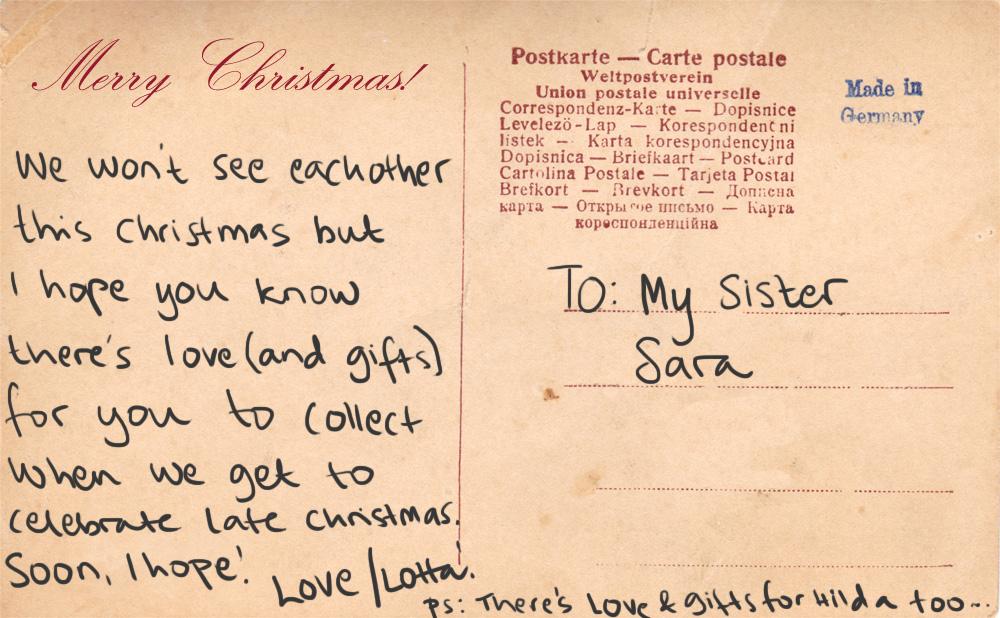 Merry Christmas!
We won't see eachother
this christmas but
I hope you know
there's love (and gifts)
for you to collect
when we get to
celebrate late christmas.
Soon, I hope!
Love /Lotta.
Postkarte — Carte postale
Weltpostverein
Union postale universelle
Correspondenz-Karte — Dopisnice
Levelező-Lap — Korespondentní
listek — Karta korespondencyjna
Dopisnica — Briefkaart — Postcard
Cartolina Postale — Tarjeta Postal
Brefkort — Brevkort — Дописна
карта — Открытое письмо — Карта
кореспонденційна
Made in
Germany
To: My Sister
Sara
ps: There's Love & gifts for Hilda too...